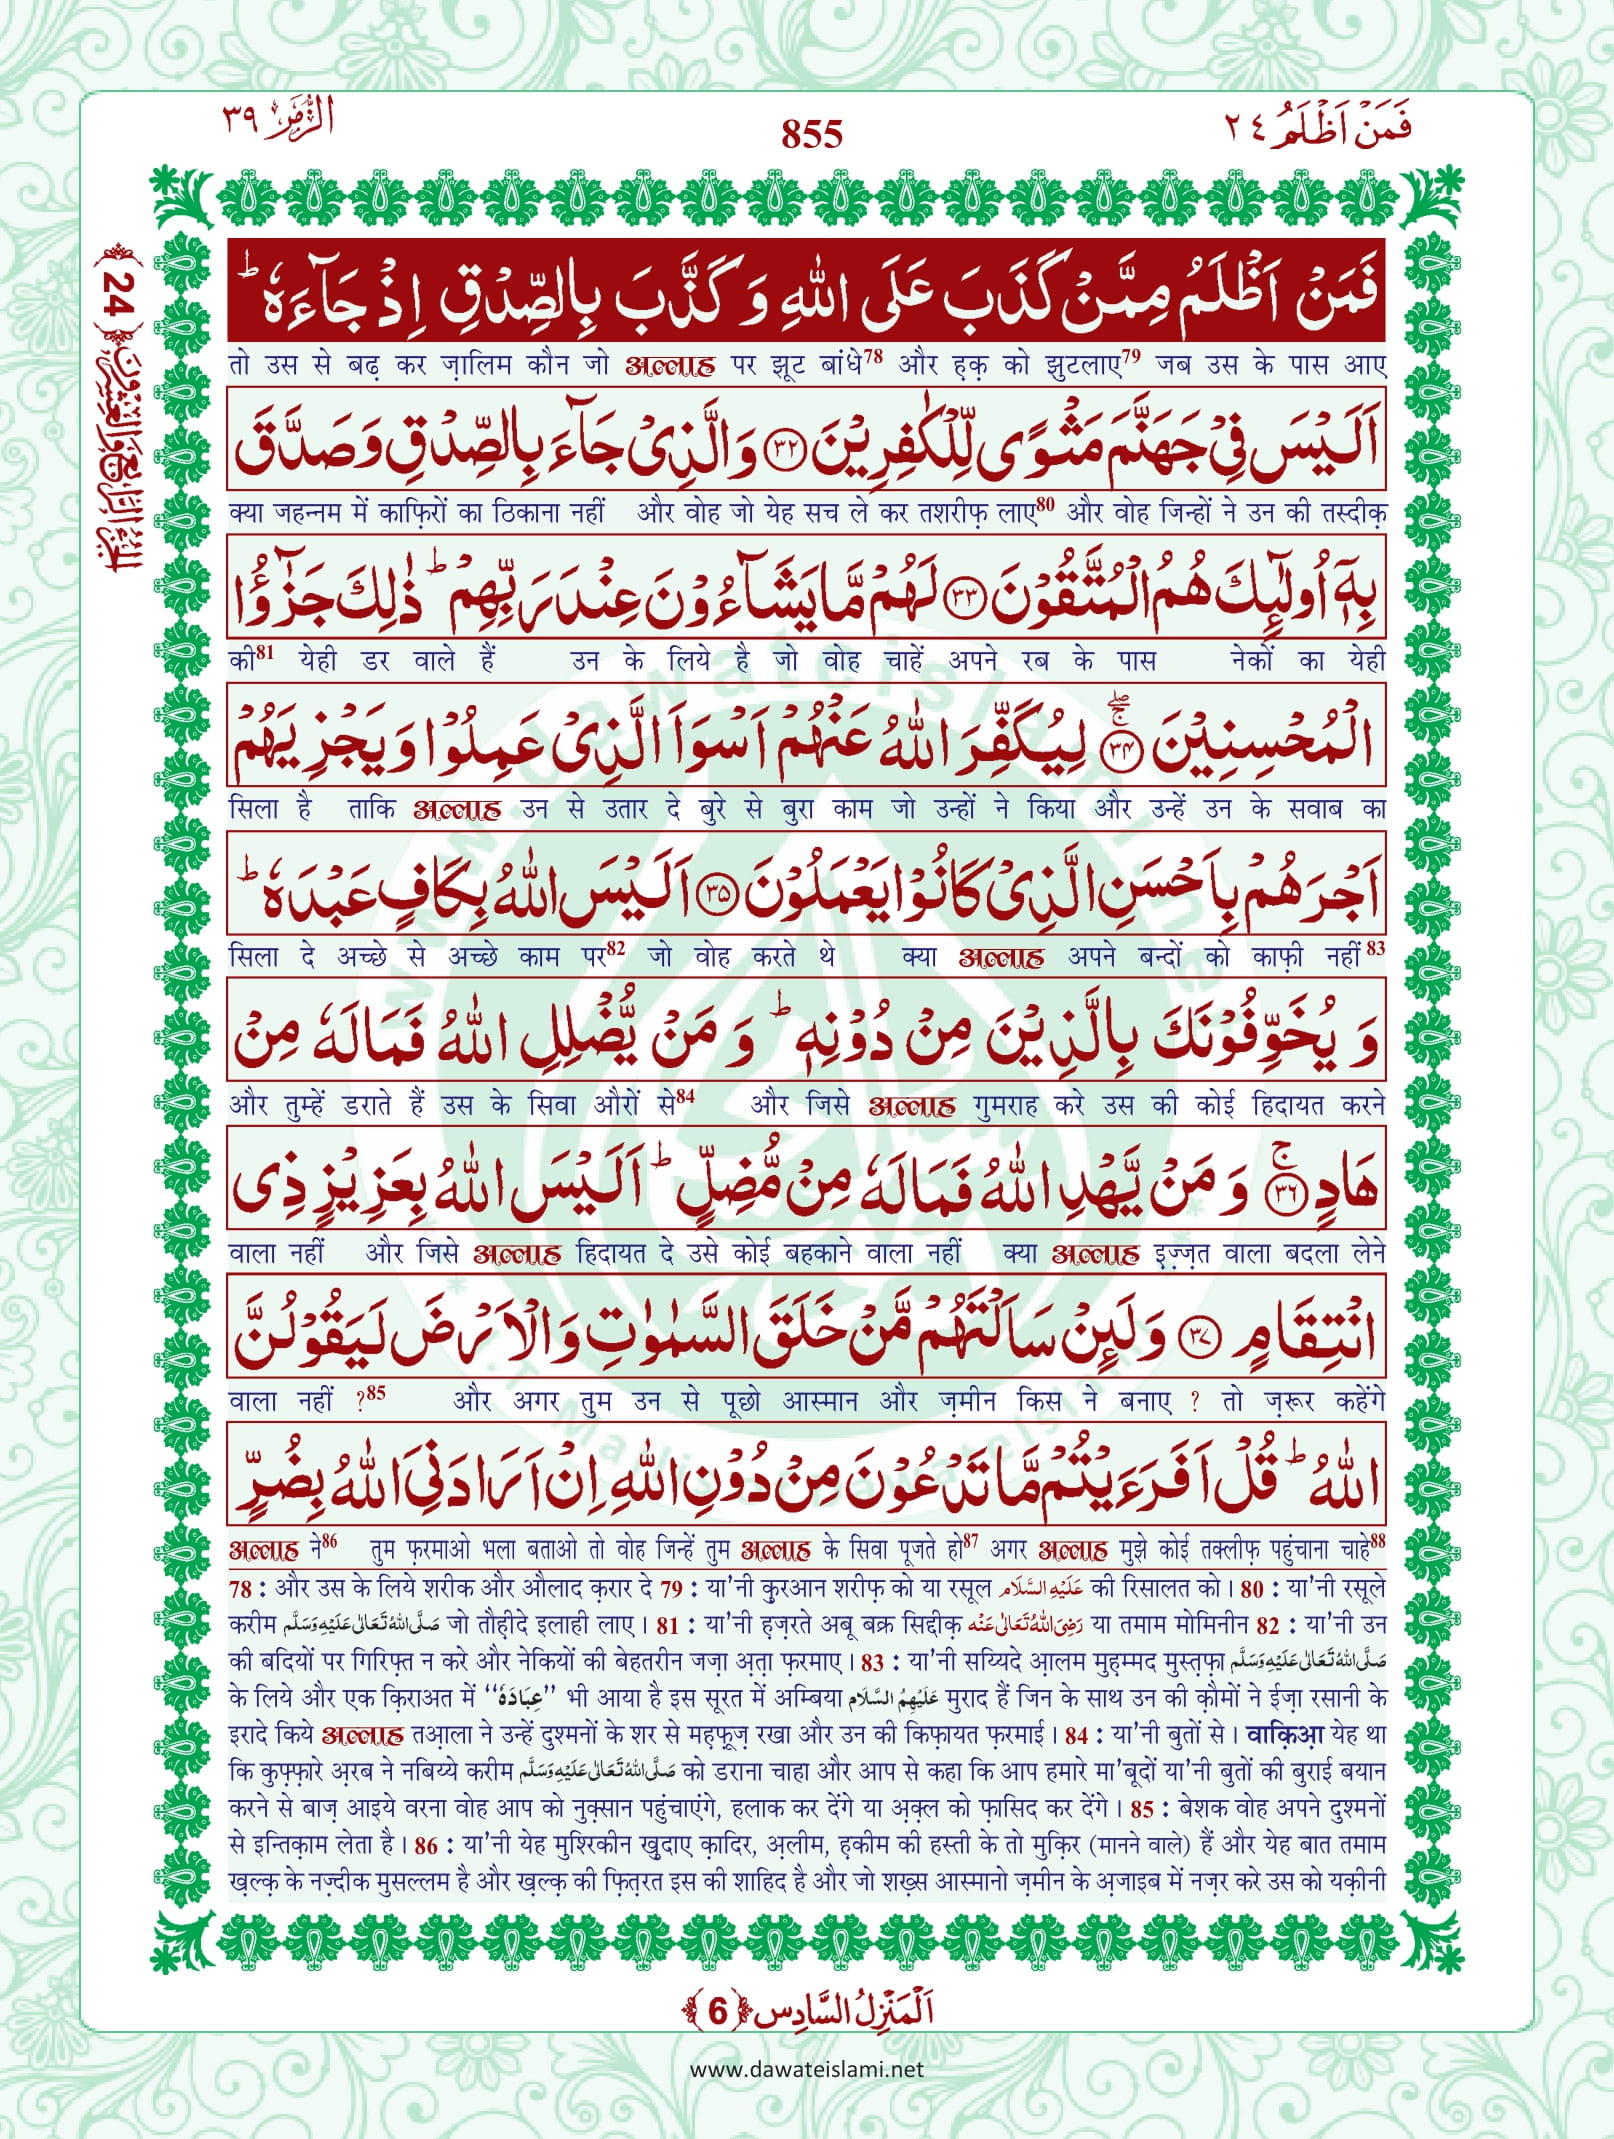 فَمَنْ اَظْلَمُ ٢٤
855
الزُّمَر ٣٩
فَمَنْ اَظْلَمُ مِمَّنْ كَذَبَ عَلَى اللّٰهِ وَ كَذَّبَ بِالصِّدْقِ اِذْ جَآءَهٗ ؕ
तो उस से बढ़ कर ज़ालिम कौन जो अल्लाह पर झूट बांधे78 और ह़क़ को झुटलाए79 जब उस के पास आए
اَلَیْسَ فِیْ جَهَنَّمَ مَثْوًی لِّلْكٰفِرِیْنَ ﴿۳۲﴾ وَ الَّذِیْ جَآءَ بِالصِّدْقِ وَ صَدَّقَ
क्या जहन्नम में काफ़िरों का ठिकाना नहीं और वोह जो येह सच ले कर तशरीफ़ लाए80 और वोह जिन्हों ने उन की तस्दीक़
بِهٖۤ اُولٰٓىِٕكَ هُمُ الْمُتَّقُوْنَ ﴿۳۳﴾ لَهُمْ مَّا یَشَآءُوْنَ عِنْدَ رَبِّهِمْ ؕ ذٰلِكَ جَزٰٓؤُا
की81 येही डर वाले हैं उन के लिये है जो वोह चाहें अपने रब के पास नेकों का येही
الْمُحْسِنِیْنَ ﴿۳۴﴾ۚۖ لِیُكَفِّرَ اللّٰهُ عَنْهُمْ اَسْوَاَ الَّذِیْ عَمِلُوْا وَ یَجْزِیَهُمْ
सिला है ताकि अल्लाह उन से उतार दे बुरे से बुरा काम जो उन्हों ने किया और उन्हें उन के सवाब का
اَجْرَهُمْ بِاَحْسَنِ الَّذِیْ كَانُوْا یَعْمَلُوْنَ ﴿۳۵﴾ اَلَیْسَ اللّٰهُ بِكَافٍ عَبْدَهٗ ؕ
सिला दे अच्छे से अच्छे काम पर82 जो वोह करते थे क्या अल्लाह अपने बन्दों को काफ़ी नहीं83
وَ یُخَوِّفُوْنَكَ بِالَّذِیْنَ مِنْ دُوْنِهٖ ؕ وَ مَنْ یُّضْلِلِ اللّٰهُ فَمَا لَهٗ مِنْ
और तुम्हें डराते हैं उस के सिवा औरों से84 और जिसे अल्लाह गुमराह करे उस की कोई हिदायत करने
هَادٍ ﴿۳۶﴾ۚ وَ مَنْ یَّهْدِ اللّٰهُ فَمَا لَهٗ مِنْ مُّضِلٍّ ؕ اَلَیْسَ اللّٰهُ بِعَزِیْزٍ ذِی
वाला नहीं और जिसे अल्लाह हिदायत दे उसे कोई बहकाने वाला नहीं क्या अल्लाह इ़ज़्ज़त वाला बदला लेने
انْتِقَامٍ ﴿۳۷﴾ وَ لَىِٕنْ سَاَلْتَهُمْ مَّنْ خَلَقَ السَّمٰوٰتِ وَ الْاَرْضَ لَیَقُوْلُنَّ
वाला नहीं ?85 और अगर तुम उन से पूछो आस्मान और ज़मीन किस ने बनाए ? तो ज़रूर कहेंगे
اللّٰهُ ؕ قُلْ اَفَرَءَیْتُمْ مَّا تَدْعُوْنَ مِنْ دُوْنِ اللّٰهِ اِنْ اَرَادَنِیَ اللّٰهُ بِضُرٍّ
अल्लाह ने86 तुम फ़रमाओ भला बताओ तो वोह जिन्हें तुम अल्लाह के सिवा पूजते हो87 अगर अल्लाह मुझे कोई तक्लीफ़ पहुंचाना चाहे88
78 : और उस के लिये शरीक और औलाद क़रार दे 79 : या'नी क़ुरआन शरीफ़ को या रसूल عَلَيْهِ السَّلَام की रिसालत को। 80 : या'नी रसूले
करीम صَلَّى اللهُ تَعَالٰى عَلَيْهِ وَسَلَّم जो तौह़ीदे इलाही लाए। 81 : या'नी ह़ज़रते अबू बक्र सिद्दीक़ رَضِىَ اللهُ تَعَالٰى عَنْه या तमाम मोमिनीन 82 : या'नी उन
की बदियों पर गिरिफ़्त न करे और नेकियों की बेहतरीन जज़ा अ़ता फ़रमाए। 83 : या'नी सय्यिदे आ़लम मुह़म्मद मुस्त़फ़ा صَلَّى اللهُ تَعَالٰى عَلَيْهِ وَسَلَّم
के लिये और एक क़िराअत में “عِبَادَهٗ” भी आया है इस सूरत में अम्बिया عَلَيْهِمُ السَّلَام मुराद हैं जिन के साथ उन की क़ौमों ने ईज़ा रसानी के
इरादे किये अल्लाह तआ़ला ने उन्हें दुश्मनों के शर से मह़फ़ूज़ रखा और उन की किफ़ायत फ़रमाई। 84 : या'नी बुतों से। वाक़िआ़ येह था
कि कुफ़्फ़ारे अ़रब ने नबिय्ये करीम صَلَّى اللهُ تَعَالٰى عَلَيْهِ وَسَلَّم को डराना चाहा और आप से कहा कि आप हमारे मा'बूदों या'नी बुतों की बुराई बयान
करने से बाज़ आइये वरना वोह आप को नुक़्सान पहुंचाएंगे, हलाक कर देंगे या अ़क़्ल को फ़ासिद कर देंगे। 85 : बेशक वोह अपने दुश्मनों
से इन्तिक़ाम लेता है। 86 : या'नी येह मुश्रिकीन ख़ुदाए क़ादिर, अ़लीम, ह़कीम की हस्ती के तो मुक़िर (मानने वाले) हैं और येह बात तमाम
ख़ल्क़ के नज़्दीक मुसल्लम है और ख़ल्क़ की फ़ित़रत इस की शाहिद है और जो शख़्स आस्मानो ज़मीन के अ़जाइब में नज़र करे उस को यक़ीनी
اَلْجُزْءُ الرَّابِعُ وَالْعِشْرُوْنَ ﴿24﴾
اَلْمَنْزِلُ السَّادِس ﴿6﴾
www.dawateislami.net